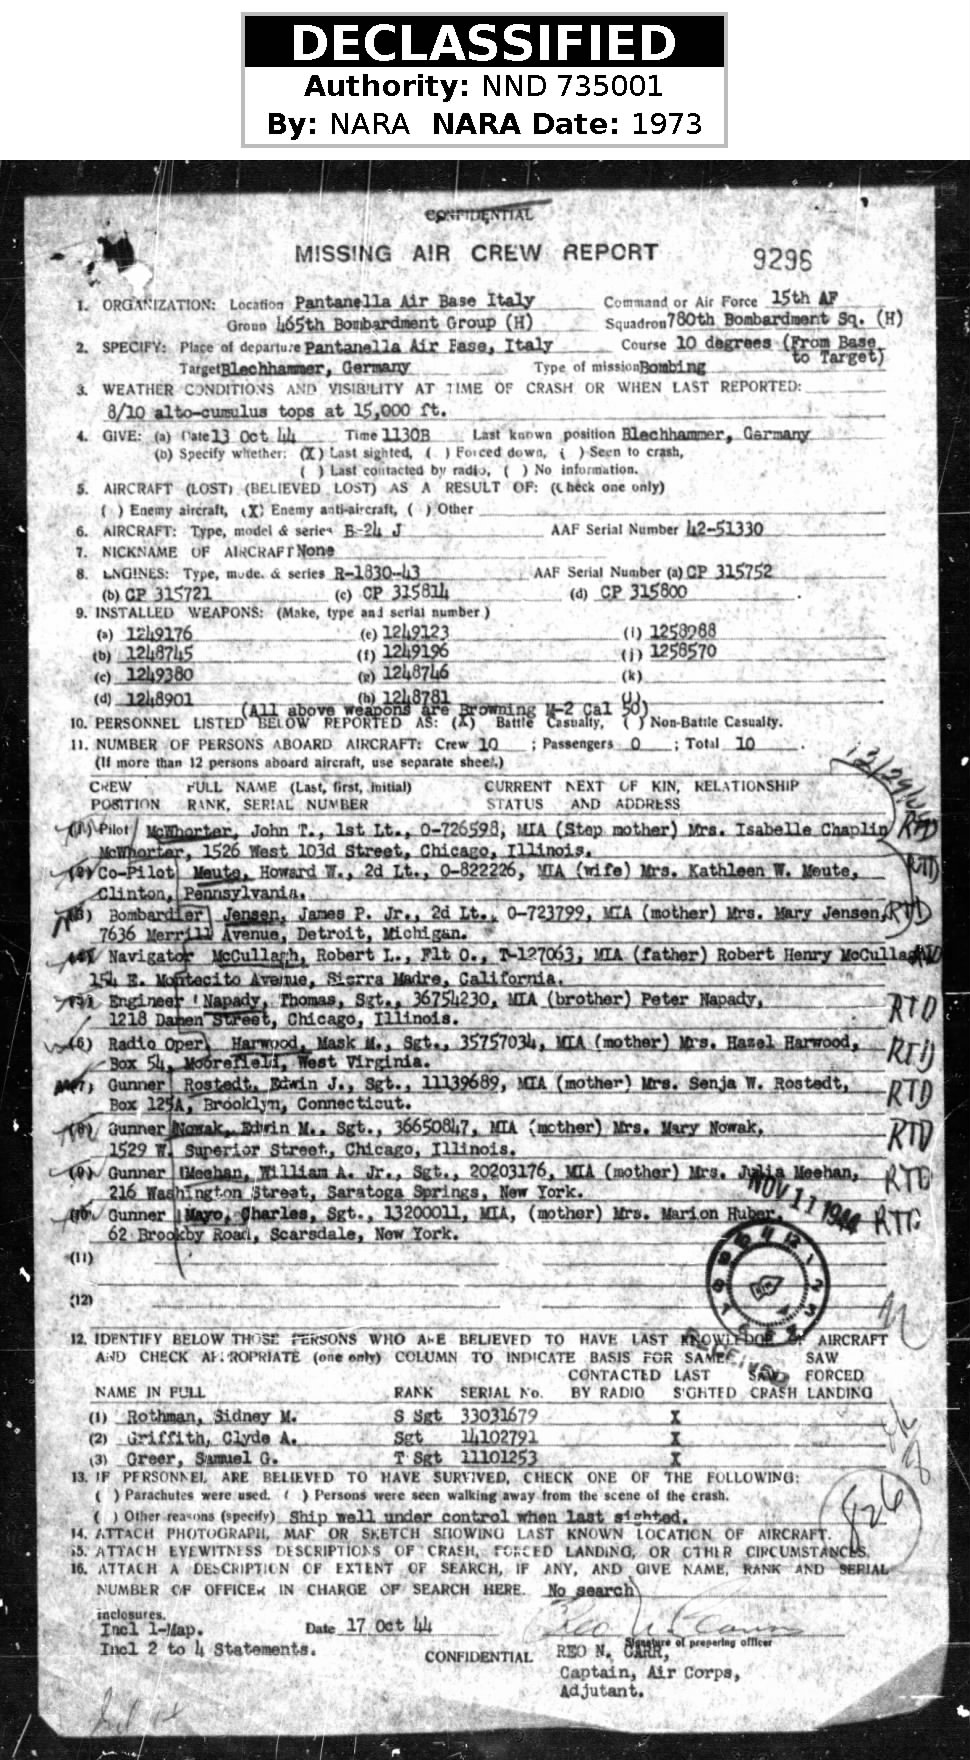 DECLASSIFIED
Authority: NND 735001
By: NARA NARA Date: 1973
CONFIDENTIAL
MISSING AIR CREW REPORT 9296
1. ORGANIZATION: Location Pantanella Air Base Italy Command or Air Force 15th AF
Group 465th Bombardment Group (H) Squadron 780th Bombardment Sq. (H)
2. SPECIFY: Place of departure Pantanella Air Base, Italy Course 10 degrees (From Base
to Target)
Target Blechhammer, Germany Type of mission Bombing
3. WEATHER CONDITIONS AND VISIBILITY AT TIME OF CRASH OR WHEN LAST REPORTED:
8/10 alto-cumulus tops at 15,000 ft.
4. GIVE: (a) Date 13 Oct 44 Time 1130B Last known position Blechhammer, Germany
(b) Specify whether: (X) Last sighted, ( ) Forced down, ( ) Seen to crash,
( ) Last contacted by radio, ( ) No information.
5. AIRCRAFT (LOST) (BELIEVED LOST) AS A RESULT OF: (Check one only)
( ) Enemy aircraft, (X) Enemy anti-aircraft, ( ) Other
6. AIRCRAFT: Type, model & series B-24 J AAF Serial Number 42-51330
7. NICKNAME OF AIRCRAFT None
8. ENGINES: Type, mode. & series R-1830-43 AAF Serial Number (a) CP 315752
(b) CP 315721 (c) CP 315814 (d) CP 315800 .
9. INSTALLED WEAPONS: (Make, type and serial number)
(a) 1249176 (e) 1249123 (i) 1258988
(b) 1248745 (f) 1249196 (j) 1258570
(c) 1249380 (g) 1248746 (k)
(d) 1248901 (h) 1248781 (l)
(All above weapons are Browning M-2 Cal 50)
10. PERSONNEL LISTED BELOW REPORTED AS: (X) Battle Casualty, ( ) Non-Battle Casualty.
11. NUMBER OF PERSONS ABOARD AIRCRAFT: Crew 10 ; Passengers 0 ; Total 10 .
(If more than 12 persons aboard aircraft, use separate sheet.)
CREW FULL NAME (Last, first, initial) CURRENT NEXT OF KIN, RELATIONSHIP
POSITION RANK, SERIAL NUMBER STATUS AND ADDRESS
(1) Pilot McWhorter, John T., 1st Lt., O-726598, MIA (Step mother) Mrs. Isabelle Chaplin RTD
McWhorter, 1526 West 103d Street, Chicago, Illinois.
(2) Co-Pilot Meute, Howard W., 2d Lt., O-822226, MIA (wife) Mrs. Kathleen W. Meute, RTD
Clinton, Pennsylvania.
(3) Bombardier Jensen, James P. Jr., 2d Lt., O-723799, MIA (mother) Mrs. Mary Jensen, RTD
7636 Merrill Avenue, Detroit, Michigan.
(4) Navigator McCullagh, Robert L., Flt O., T-127063, MIA (father) Robert Henry McCullagh
154 E. Montecito Avenue, Sierra Madre, California.
(5) Engineer Napady, Thomas, Sgt., 36754230, MIA (brother) Peter Napady, RTD
1218 Damen Street, Chicago, Illinois.
(6) Radio Oper. Harwood, Mask M., Sgt., 35757034, MIA (mother) Mrs. Hazel Harwood, RTD
Box 54, Moorefield, West Virginia.
(7) Gunner Rostedt, Edwin J., Sgt., 11139689, MIA (mother) Mrs. Senja W. Rostedt, RTD
Box 125A, Brooklyn, Connecticut.
(8) Gunner Nowak, Edwin M., Sgt., 36650847, MIA (mother) Mrs. Mary Nowak, RTD
1529 W. Superior Street, Chicago, Illinois.
(9) Gunner Meehan, William A. Jr., Sgt., 20203176, MIA (mother) Mrs. Julia Meehan, RTD
216 Washington Street, Saratoga Springs, New York.
NOV 17 1944
(10) Gunner Mayo, Charles, Sgt., 13200011, MIA, (mother) Mrs. Marion Huber, RTD
62 Brookby Road, Scarsdale, New York.
(11)
(12)
RECEIVED
12. IDENTIFY BELOW THOSE PERSONS WHO ARE BELIEVED TO HAVE LAST KNOWLEDGE OF AIRCRAFT
AND CHECK APPROPRIATE (one only) COLUMN TO INDICATE BASIS FOR SAME: SAW
CONTACTED LAST SAW FORCED
NAME IN FULL RANK SERIAL No. BY RADIO SIGHTED CRASH LANDING
(1) Rothman, Sidney M. S Sgt 33031679 X
(2) Griffith, Clyde A. Sgt 14102791 X
(3) Greer, Samuel G. T Sgt 11101253 X
13. IF PERSONNEL ARE BELIEVED TO HAVE SURVIVED, CHECK ONE OF THE FOLLOWING:
( ) Parachutes were used. ( ) Persons were seen walking away from the scene of the crash.
( ) Other reasons (specify) Ship well under control when last sighted.
14. ATTACH PHOTOGRAPH, MAP OR SKETCH SHOWING LAST KNOWN LOCATION OF AIRCRAFT.
15. ATTACH EYEWITNESS DESCRIPTIONS OF CRASH, FORCED LANDING, OR OTHER CIRCUMSTANCES.
16. ATTACH A DESCRIPTION OF EXTENT OF SEARCH, IF ANY, AND GIVE NAME, RANK AND SERIAL
NUMBER OF OFFICER IN CHARGE OF SEARCH HERE. No search
inclosures.
Incl 1-Map. Date 17 Oct 44
Signature of preparing officer
Incl 2 to 4 Statements. CONFIDENTIAL REO N. CARR,
Captain, Air Corps,
Adjutant.